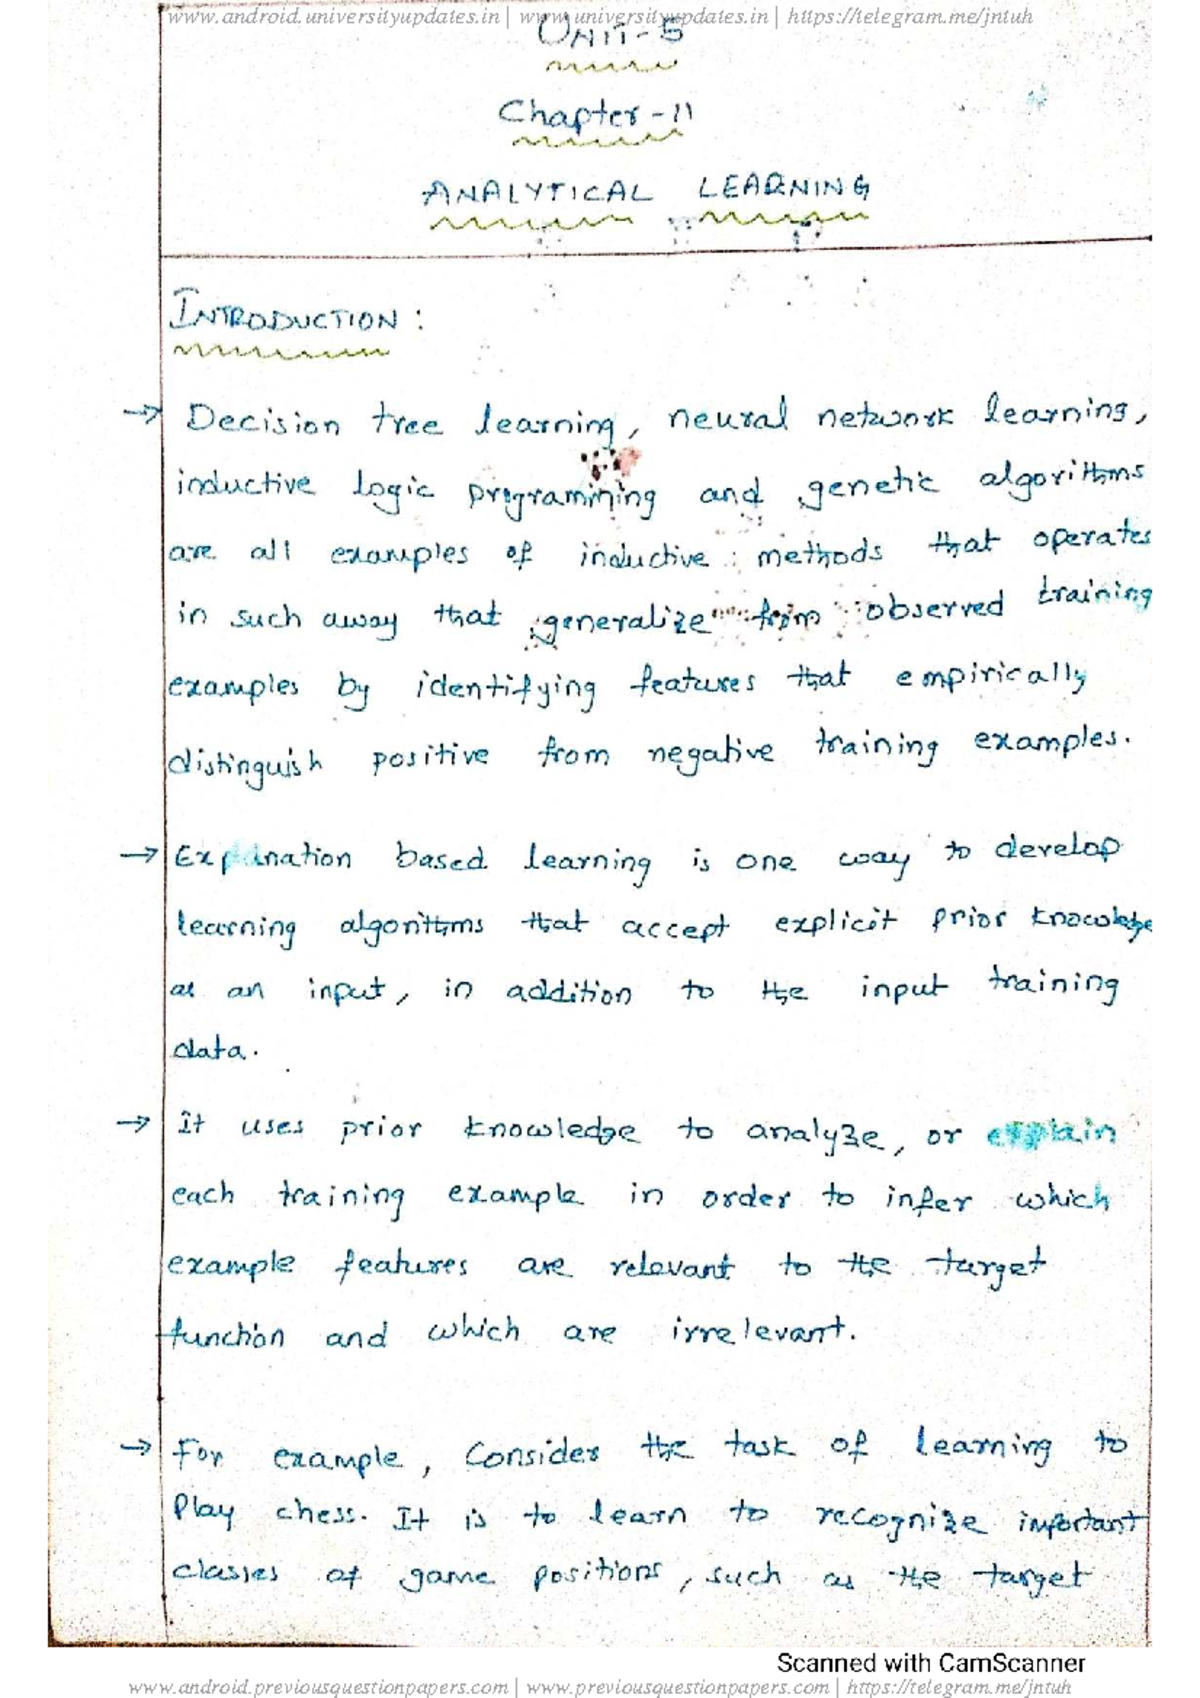 www.android.universityupdates.in | www.universityupdates.in | https://telegram.me/jntuh
UNIT-5
Chapter-11
ANALYTICAL LEARNING
INTRODUCTION :
→ Decision tree learning, neural network learning,
inductive logic programming and genetic algorithms
are all examples of inductive methods that operates
in such away that generalize from observed training
examples by identifying features that empirically
distinguish positive from negative training examples.
→ Explanation based learning is one way to develop
learning algorithms that accept explicit prior knowledge
as an input, in addition to the input training
data.
→ It uses prior knowledge to analyze, or explain
each training example in order to infer which
example features are relevant to the target
function and which are irrelevant.
→ For example, Consider the task of learning to
Play chess. It is to learn to recognize important
classes of game positions, such as the target
Scanned with CamScanner
www.android.previousquestionpapers.com | www.previousquestionpapers.com | https://telegram.me/jntuh